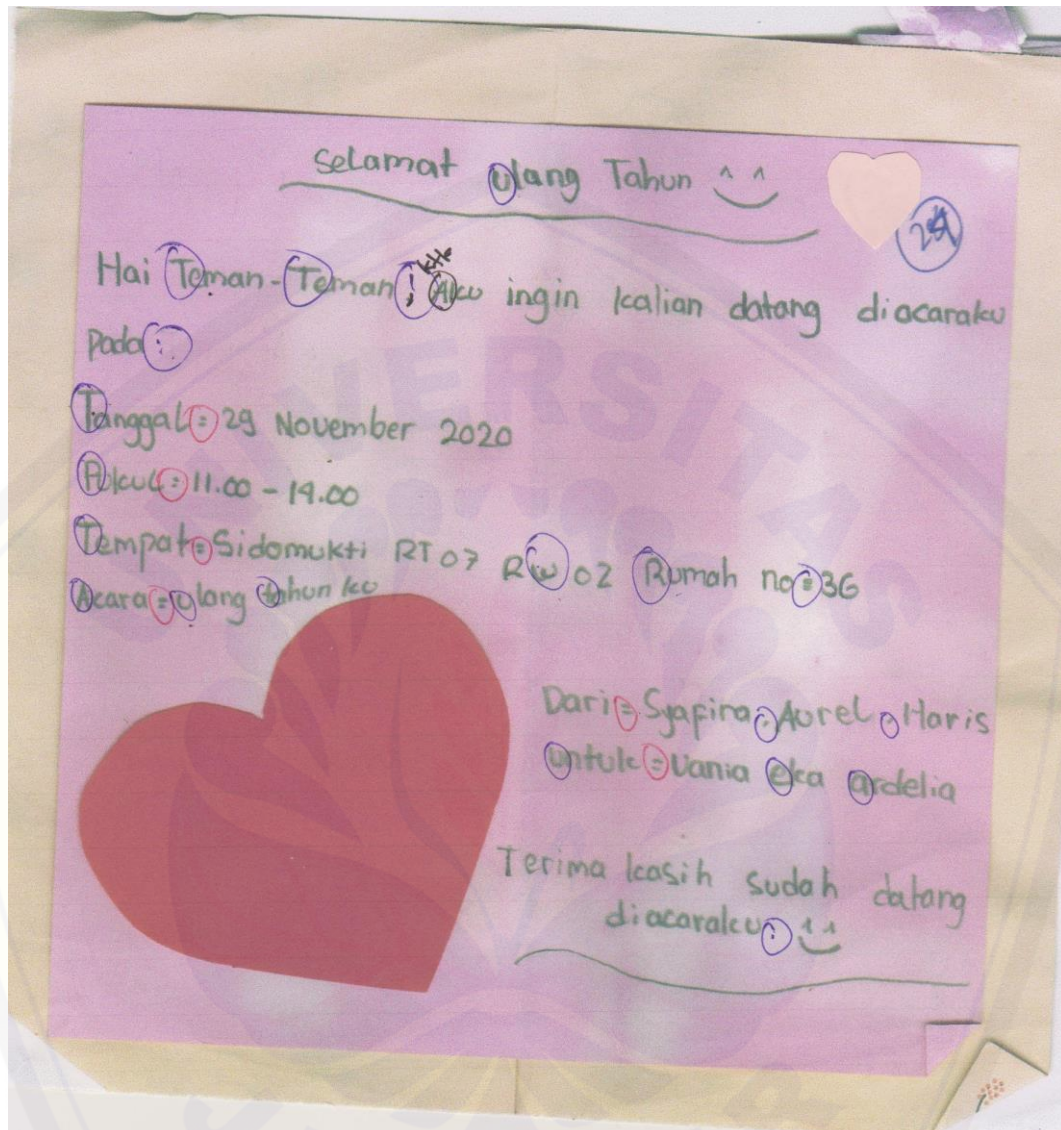 Selamat ulang Tahun
24
Hai Teman-Teman! Aku ingin kalian datang diacaraku
pada:
Tanggal= 29 November 2020
Pukul= 11.00 - 19.00
Tempat= Sidomukti RT 07 RW 02 Rumah no= 36
Acara= ulang tahun ku
Dari= Syafira. Aurel. Haris
untuk= Vania eka ardelia
Terima kasih sudah datang
diacaraku!
UNIVERSITAS